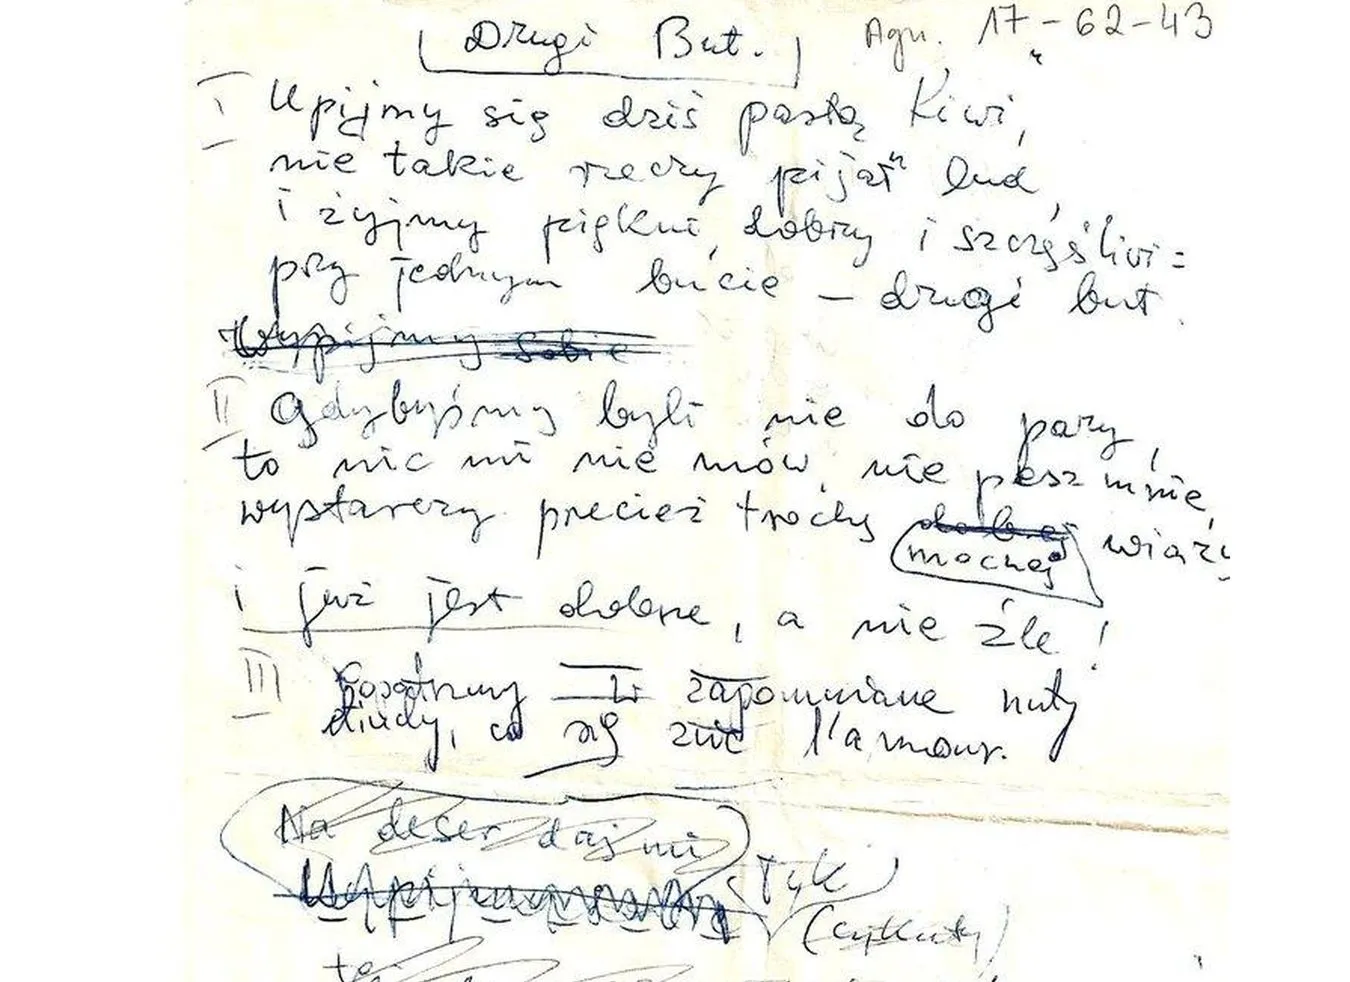 Drugi But. Agn. 17-62-43
I Upijmy się dziś pastą Kiwi,
nie takie rzeczy pijał lud,
i żyjmy piękni, dobrzy i szczęśliwi =
przy jednym bucie – drugi but.
Wypijmy sobie
II Gdybyśmy byli nie do pary,
to nic mi nie mów, nie pesz mnie,
wystarczy przecież trochę wiary
mocnej
i już jest dobrze, a nie źle!
III zapomniane nuty
co się zwie l'amour.
Na deser daj mi
łyk
(cykuty)
tej